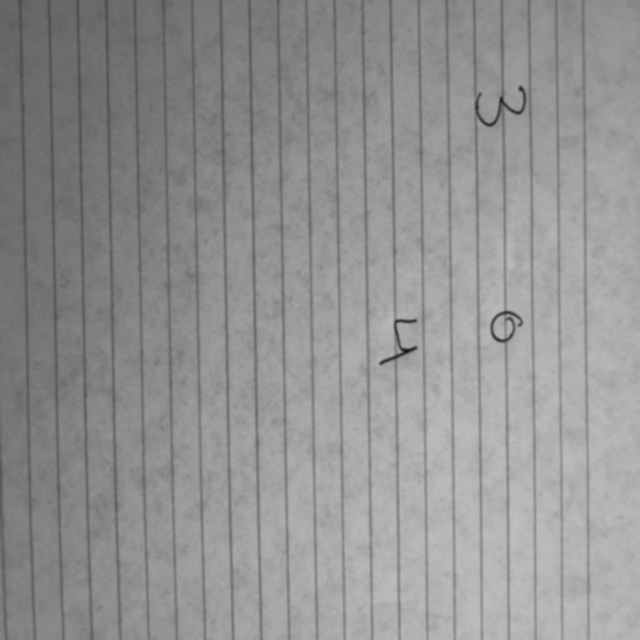 3 6
4